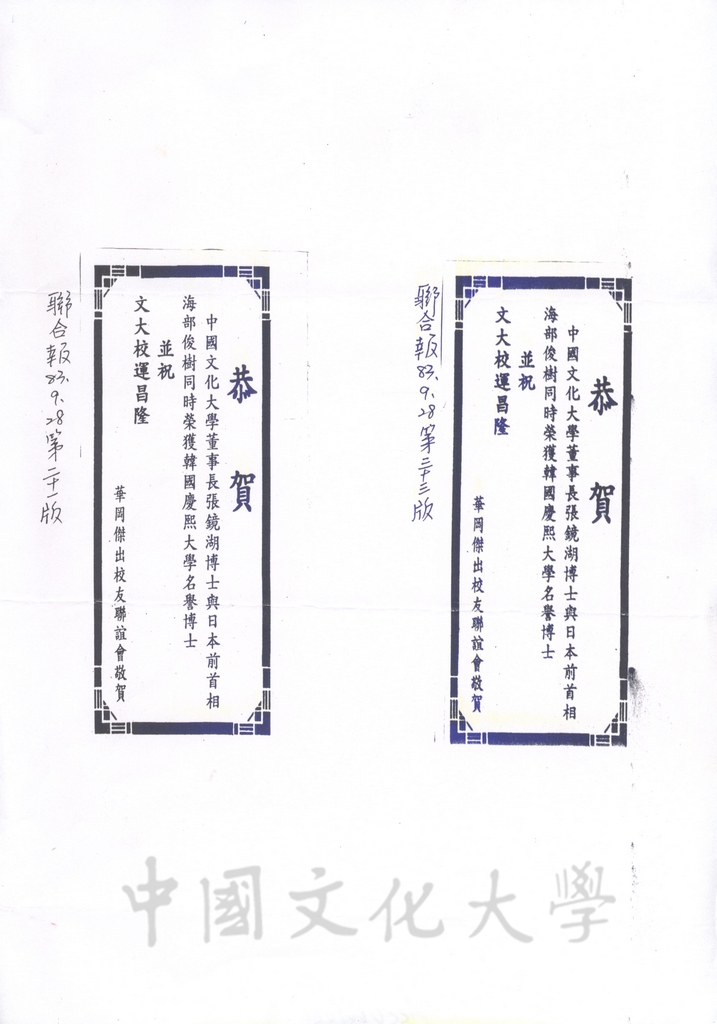 恭賀
中國文化大學董事長張鏡湖博士與日本前首相
海部俊樹同時榮獲韓國慶熙大學名譽博士
並祝
文大校運昌隆
華岡傑出校友聯誼會敬賀
聯合報83.9.28第三十三版
恭賀
中國文化大學董事長張鏡湖博士與日本前首相
海部俊樹同時榮獲韓國慶熙大學名譽博士
並祝
文大校運昌隆
華岡傑出校友聯誼會敬賀
聯合報83.9.28第二十一版
中國文化大學